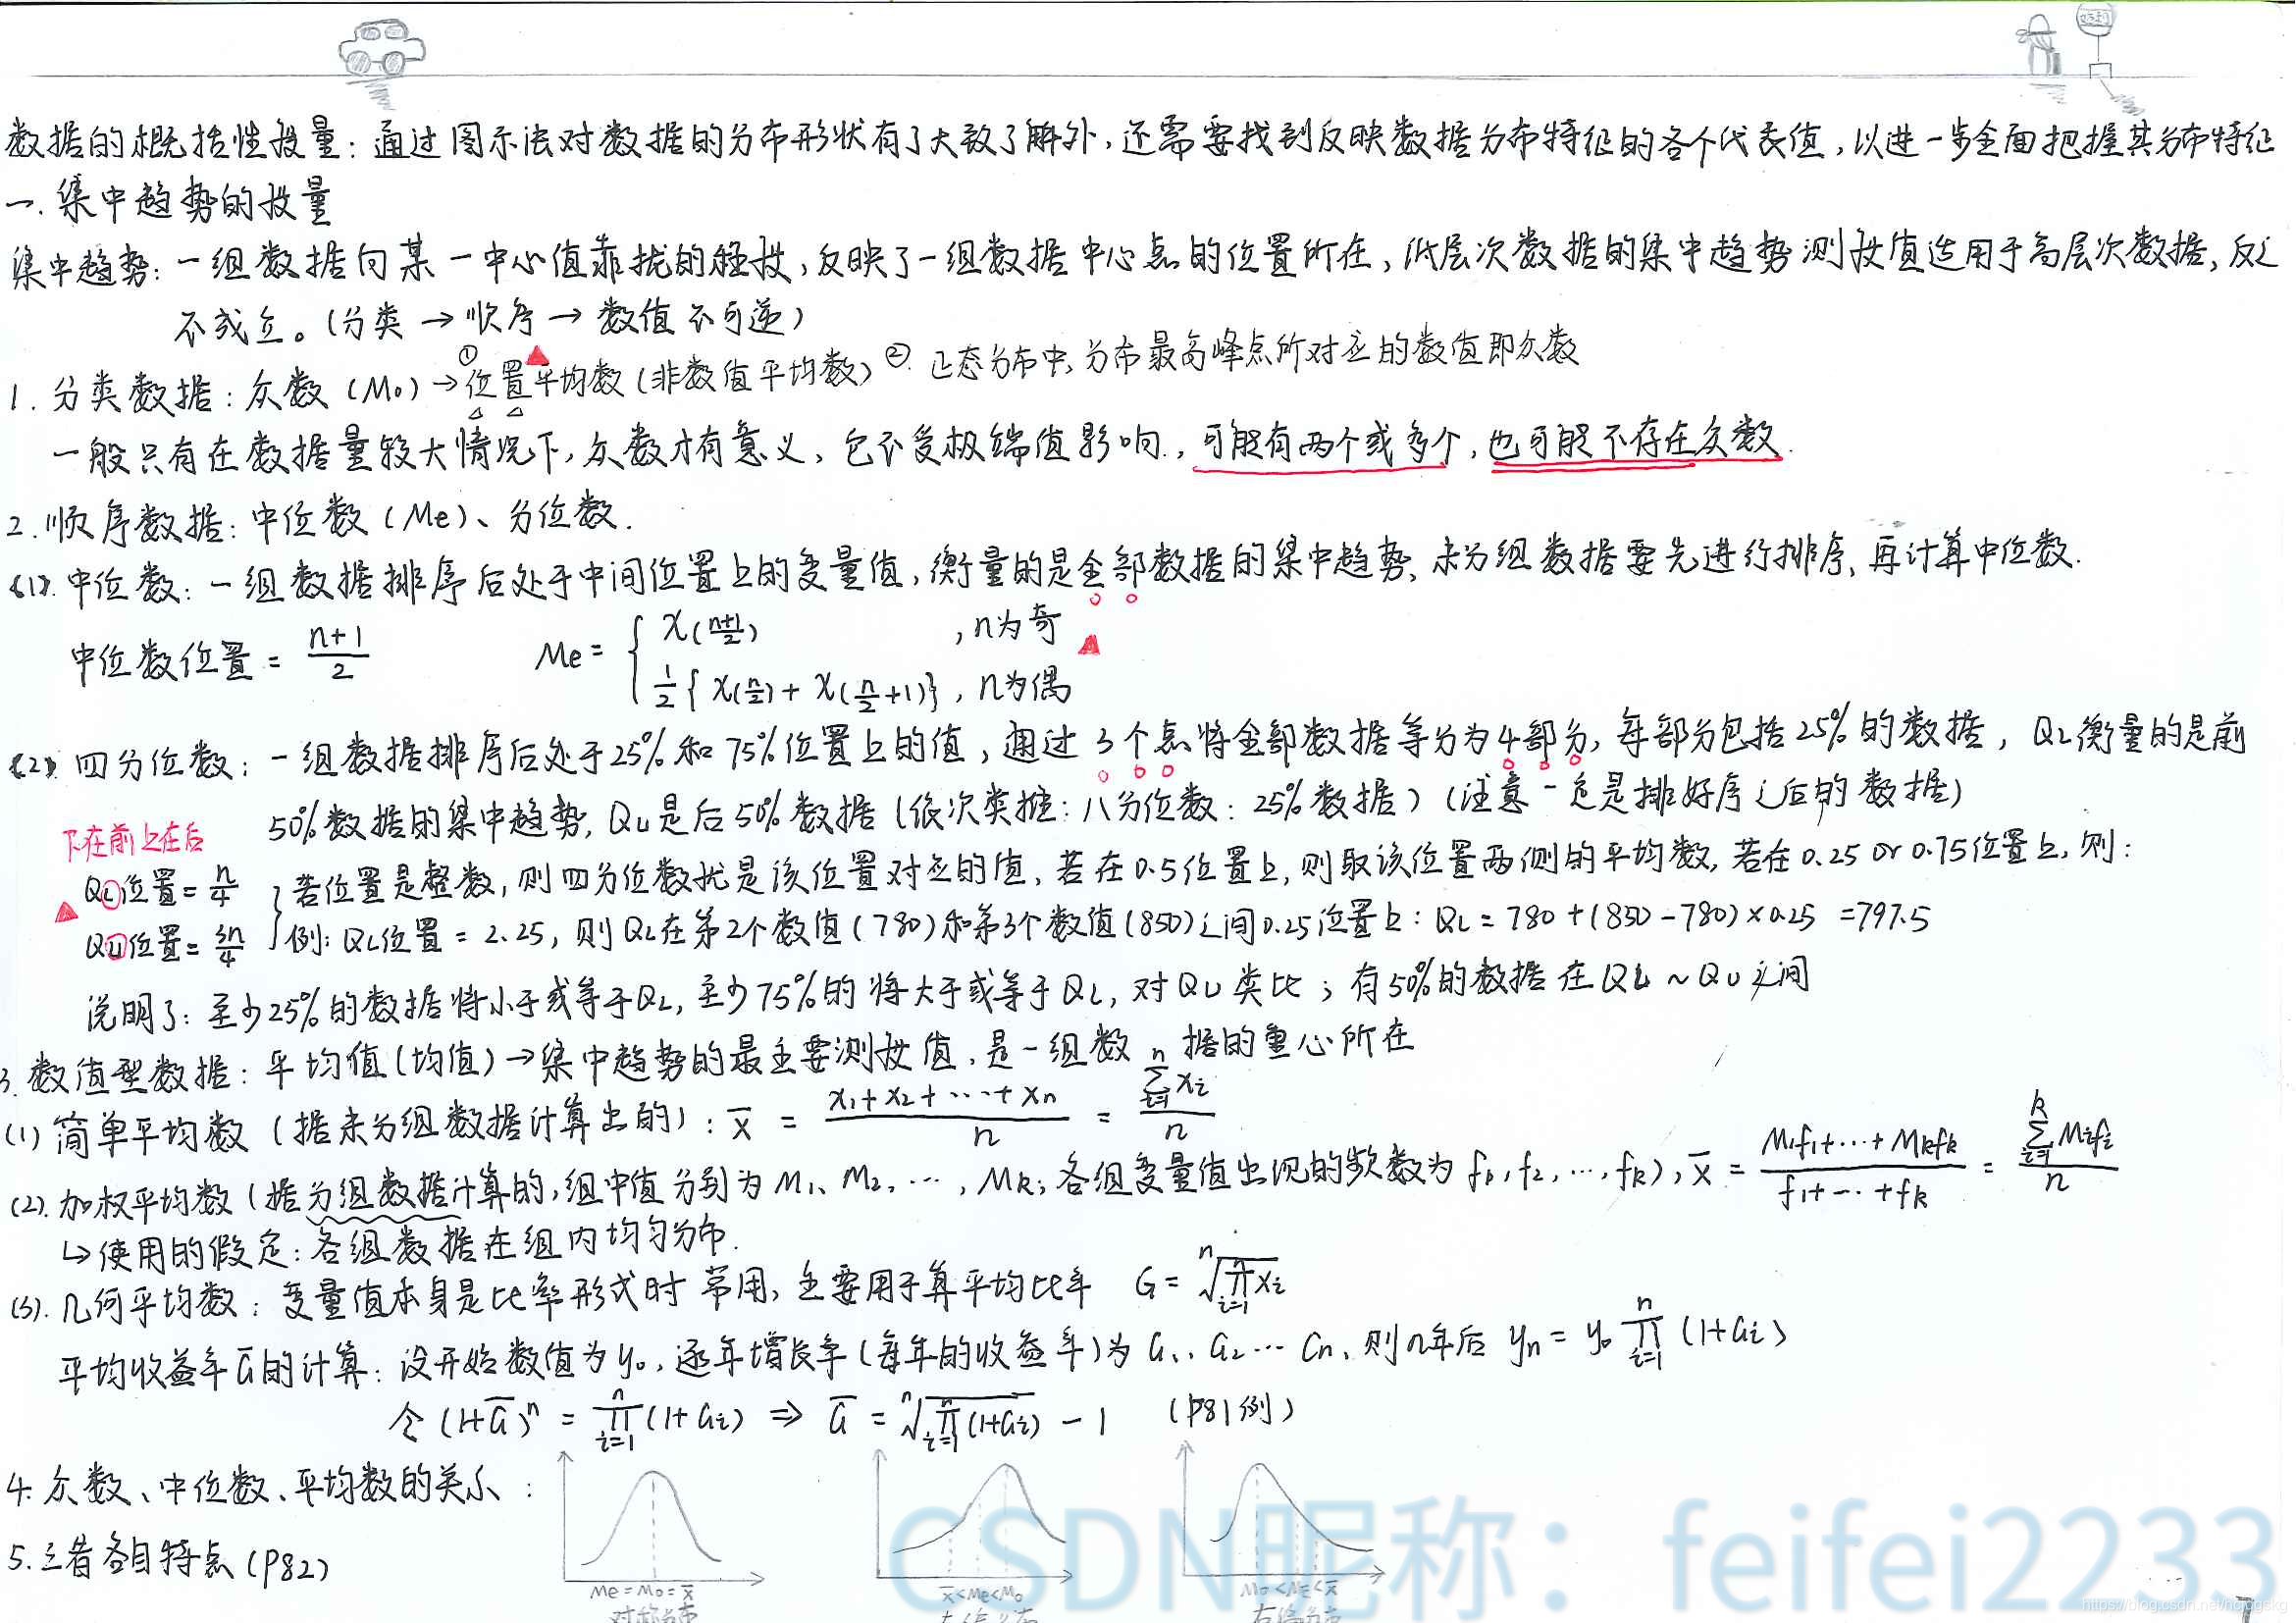 数据的概括性度量：通过图示法对数据的分布形状有了大致了解外，还需要找到反映数据分布特征的各个代表值，以进一步全面把握其分布特征
一. 集中趋势的度量
集中趋势：一组数据向某一中心值靠拢的程度，反映了一组数据中心点的位置所在，低层次数据的集中趋势测度值适用于高层次数据，反之
不成立。(分类→顺序→数值 不可逆)
1. 分类数据：众数 (Mo) → ①位置平均数 (非数值平均数) ②. 正态分布中，分布最高峰点所对应的数值即众数
一般只有在数据量较大情况下，众数才有意义，它不受极端值影响.，可能有两个或多个，也可能不存在众数.
2. 顺序数据：中位数 (Me)、分位数.
(1). 中位数：一组数据排序后处于中间位置上的变量值，衡量的是全部数据的集中趋势，未分组数据要先进行排序，再计算中位数.
中位数位置 = (n+1)/2 Me = { x((n+1)/2) , n为奇
1/2 { x(n/2) + x(n/2+1) } , n为偶
(2) 四分位数：一组数据排序后处于25%和75%位置上的值，通过3个点将全部数据等分为4部分，每部分包括25%的数据，QL衡量的是前
50%数据的集中趋势，QU是后50%数据 (依次类推：八分位数：25%数据) (注意一定是排好序之后的数据)
下在前上在后
QL位置 = n/4 } 若位置是整数，则四分位数就是该位置对应的值，若在0.5位置上，则取该位置两侧的平均数，若在0.25 or 0.75位置上，则：
QU位置 = 3n/4 例：QL位置 = 2.25，则QL在第2个数值(780)和第3个数值(850)之间0.25位置上：QL = 780 + (850 - 780) × 0.25 = 797.5
说明了：至少25%的数据将小于或等于QL，至少75%的将大于或等于QL，对QU类比；有50%的数据在QL ~ QU之间
3. 数值型数据：平均值(均值) → 集中趋势的最主要测度值，是一组数据的重心所在
(1) 简单平均数 (据未分组数据计算出的)：x̄ = (x1 + x2 + ··· + xn)/n = Σ(i=1→n) xi / n
(2). 加权平均数 (据分组数据计算的，组中值分别为M1、M2、···，Mk；各组变量值出现的频数为f1，f2，···，fk)，x̄ = (M1f1 + ··· + Mkfk)/(f1 + ··· + fk) = Σ(i=1→k) Mifi / n
↳ 使用的假定：各组数据在组内均匀分布.
(3). 几何平均数：变量值本身是比率形式时常用，主要用于算平均比率 G = ⁿ√(∏(i=1→n) xi)
平均收益率Ḡ的计算：设开始数值为y0，逐年增长率(每年的收益率)为G1、G2 ··· Gn、则n年后 yn = y0 ∏(i=1→n) (1+Gi)
令 (1+Ḡ)ⁿ = ∏(i=1→n) (1+Gi) ⇒ Ḡ = ⁿ√(∏(i=1→n) (1+Gi)) - 1 (P81例)
4. 众数、中位数、平均数的关系：
Me = Mo = x̄
对称分布
x̄ < Me < Mo
左偏分布
Mo < Me < x̄
右偏分布
5. 三者各自特点 (P82)
CSDN昵称：feifei2233